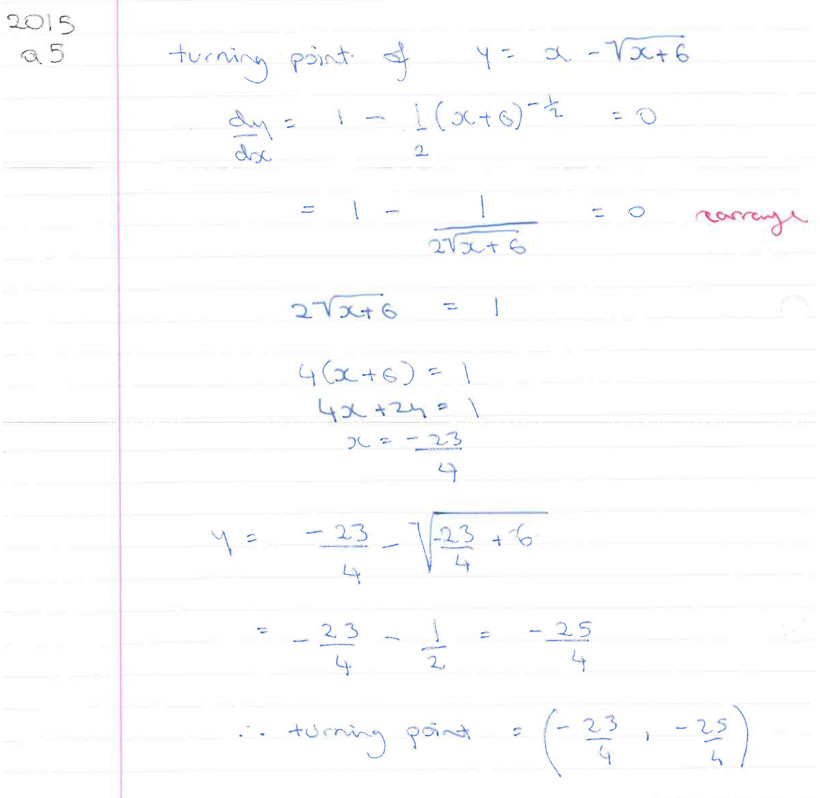 2015
Q5
turning point of y = x - √(x+6)
dy/dx = 1 - 1/2 (x+6)^(-1/2) = 0
= 1 - 1/(2√(x+6)) = 0 rearrange
2√(x+6) = 1
4(x+6) = 1
4x + 24 = 1
x = -23/4
y = -23/4 - √(-23/4 + 6)
= -23/4 - 1/2 = -25/4
∴ turning point = (-23/4, -25/4)